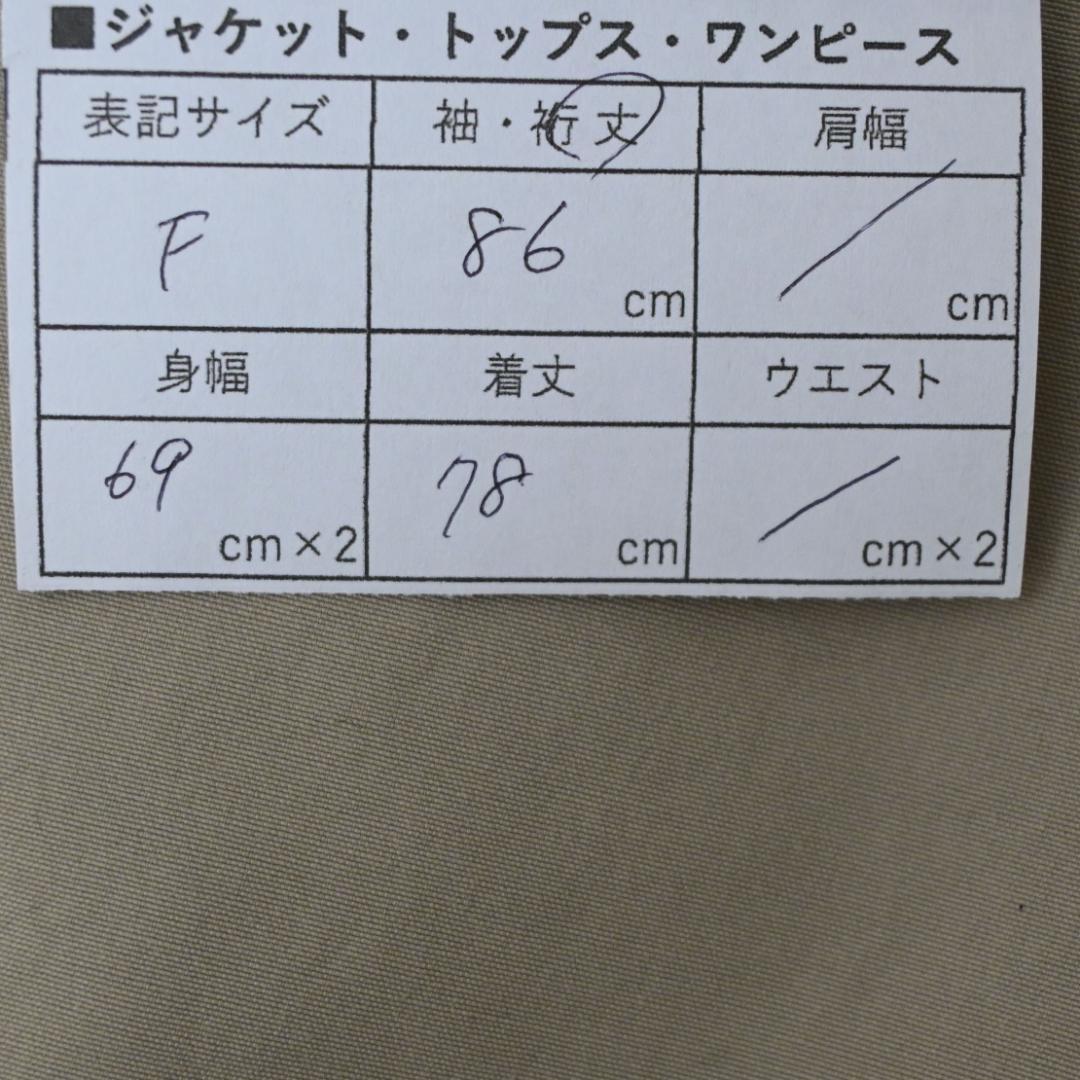 ■ジャケット・トップス・ワンピース
表記サイズ 袖・裄丈 肩幅
F 86 cm / cm
身幅 着丈 ウエスト
69 cm×2 78 cm / cm×2